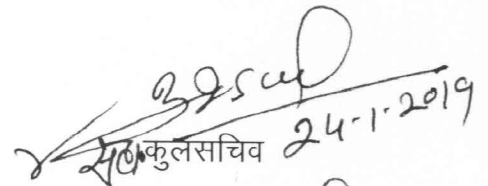 सहा. कुलसचिव 24-1-2019